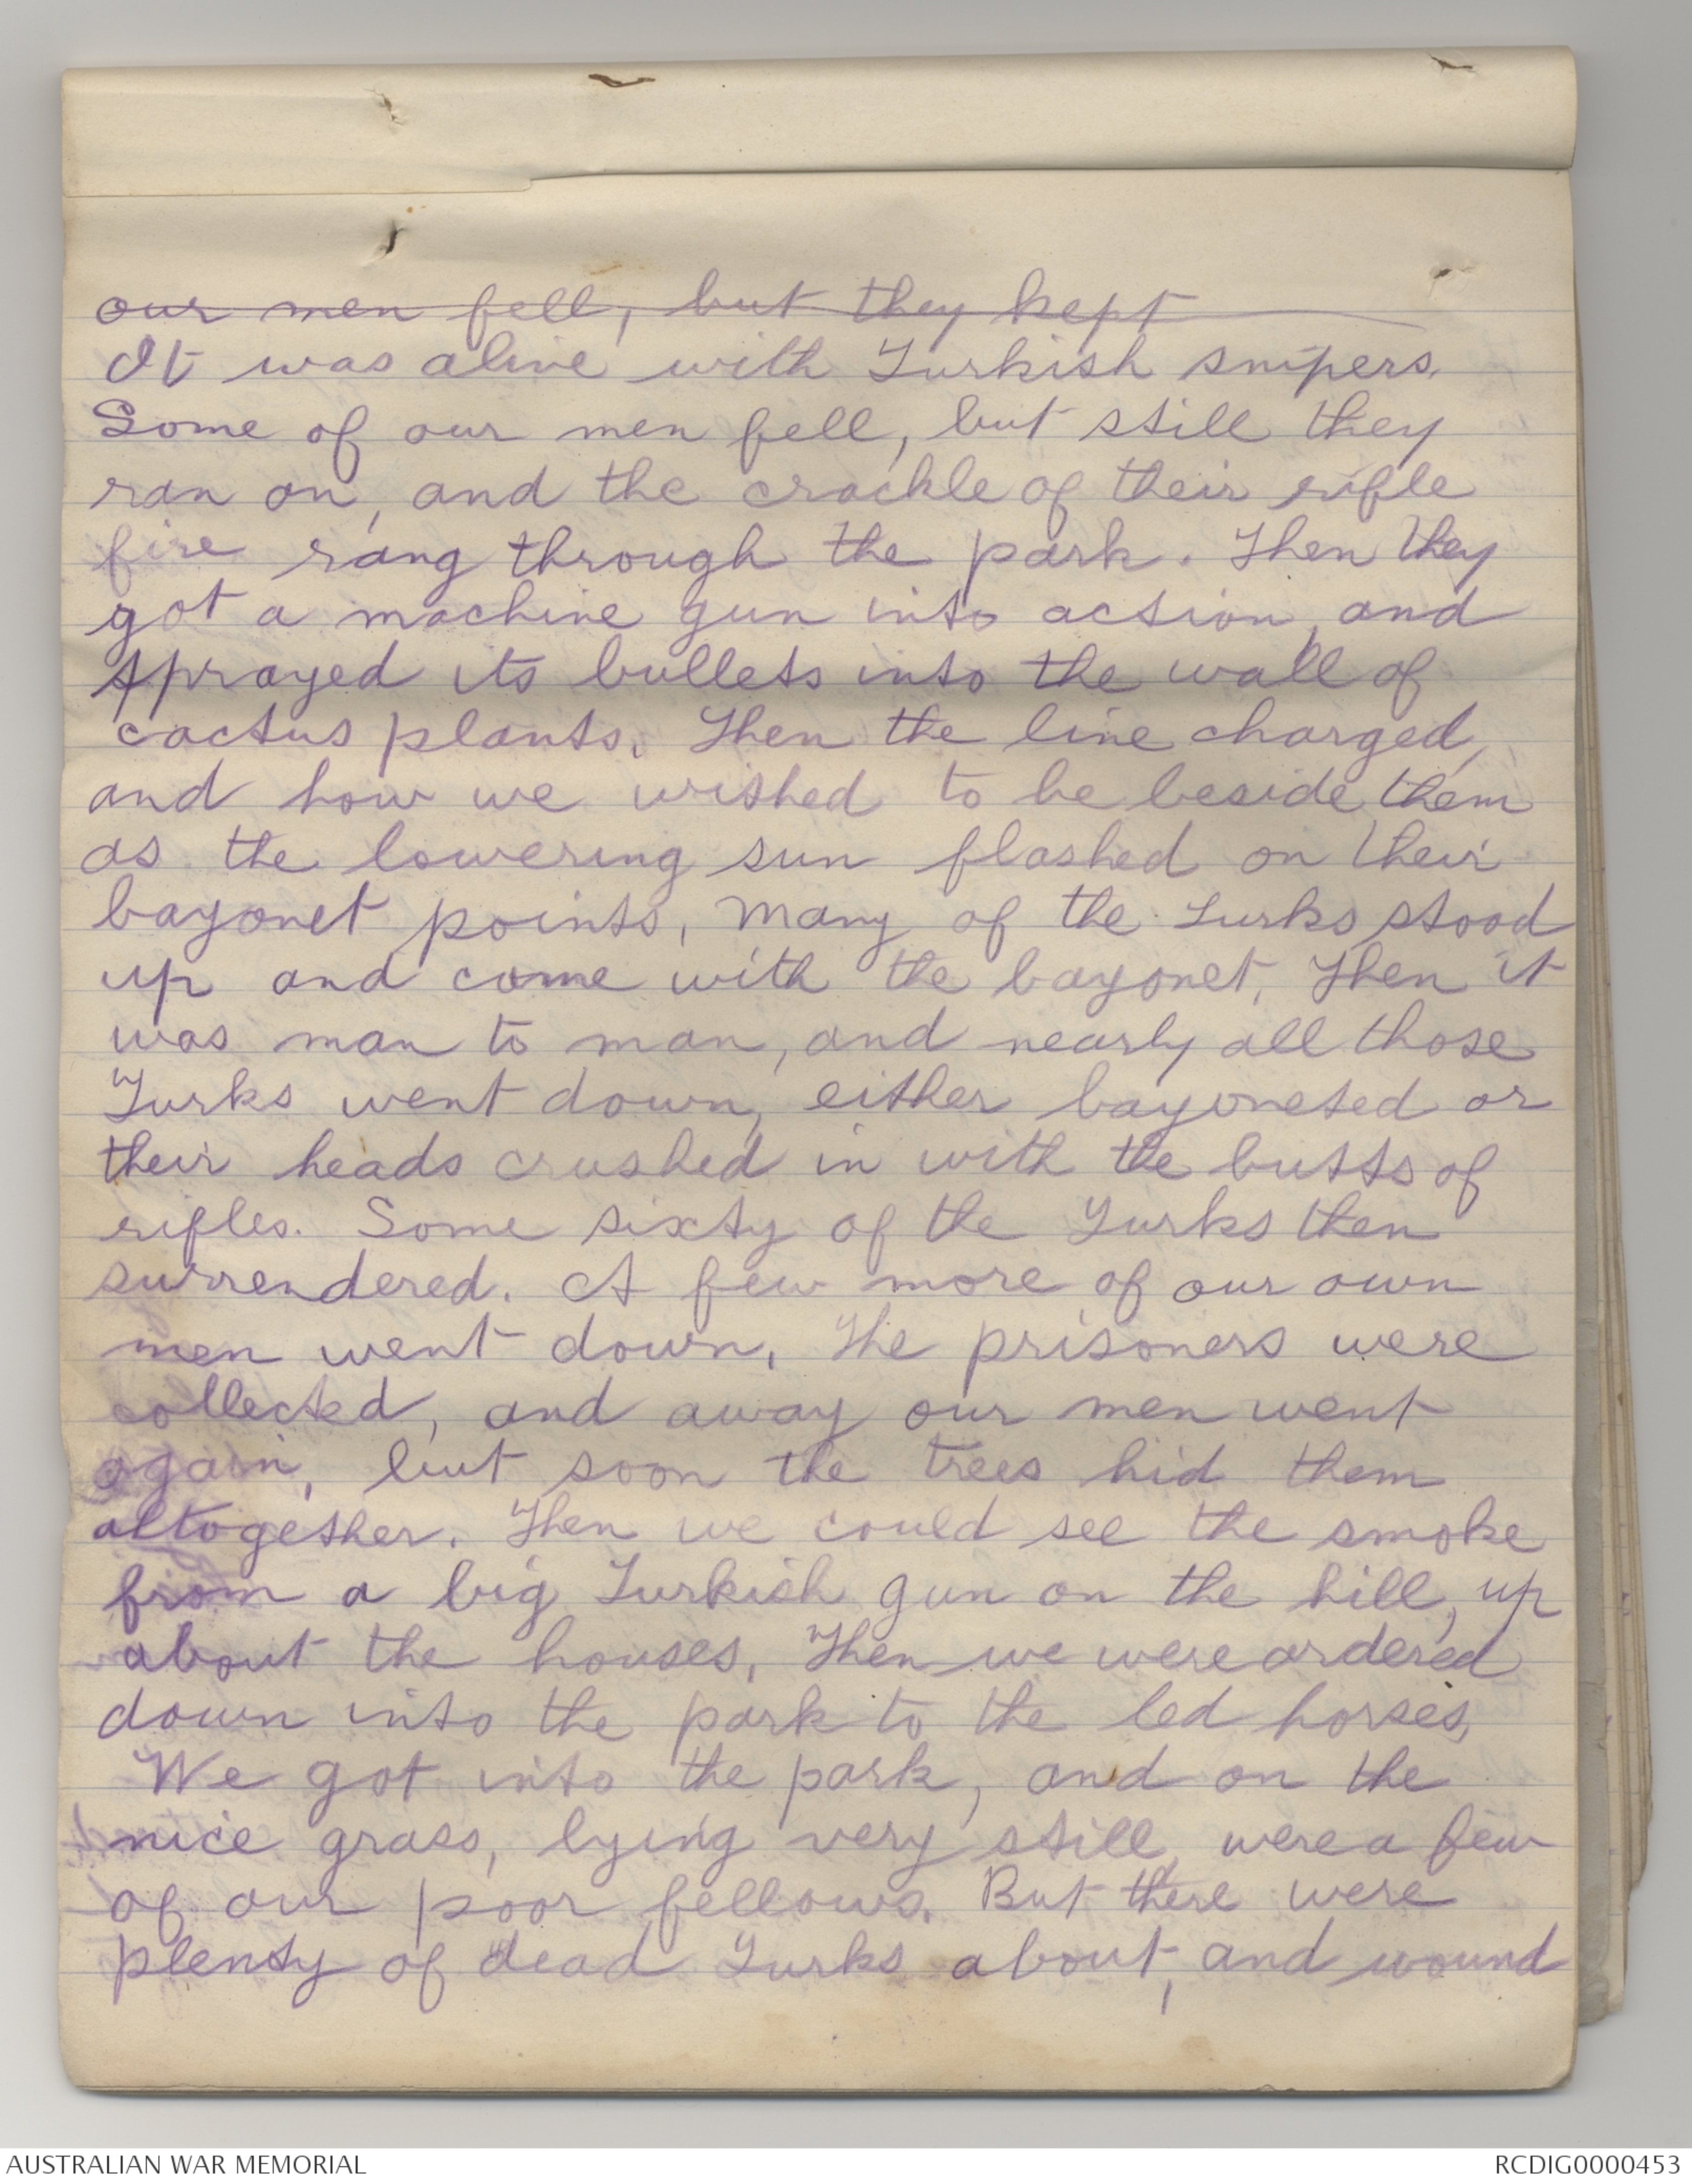 our men fell, but they kept
It was alive with Turkish snipers.
Some of our men fell, but still they
ran on, and the crackle of their rifle
fire rang through the park. Then they
got a machine gun into action, and
sprayed its bullets into the wall of
cactus plants. Then the line charged,
and how we wished to be beside them
as the lowering sun flashed on their
bayonet points. Many of the Turks stood
up and come with the bayonet. Then it
was man to man, and nearly all those
Turks went down, either bayoneted or
their heads crushed in with the butts of
rifles. Some sixty of the Turks then
surrendered. A few more of our own
men went down. The prisoners were
collected, and away our men went
again, but soon the trees hid them
altogether. Then we could see the smoke
from a big Turkish gun on the hill, up
about the houses. Then we were ordered
down into the park to the led horses,
We got into the park, and on the
nice grass, lying very still, were a few
of our poor fellows. But there were
plenty of dead Turks about, and wound
AUSTRALIAN WAR MEMORIAL
RCDIG0000453